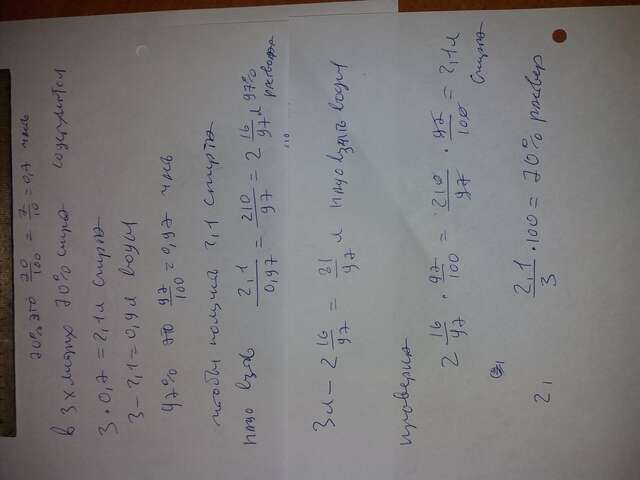 70% это 70/100 = 7/10 = 0,7 часть
в 3х литрах 70% спирта содержится
3 · 0,7 = 2,1 л спирта
3 - 2,1 = 0,9 л воды
97% это 97/100 = 0,97 часть
чтобы получить 2,1 спирта
надо взять 2,1/0,97 = 210/97 = 2 16/97 л 97% раствора
3 л - 2 16/97 = 81/97 л надо взять воды
проверка
2 16/97 · 97/100 = 210/97 · 97/100 = 2,1 л спирта
2,1/3 · 100 = 70% раствор
2,